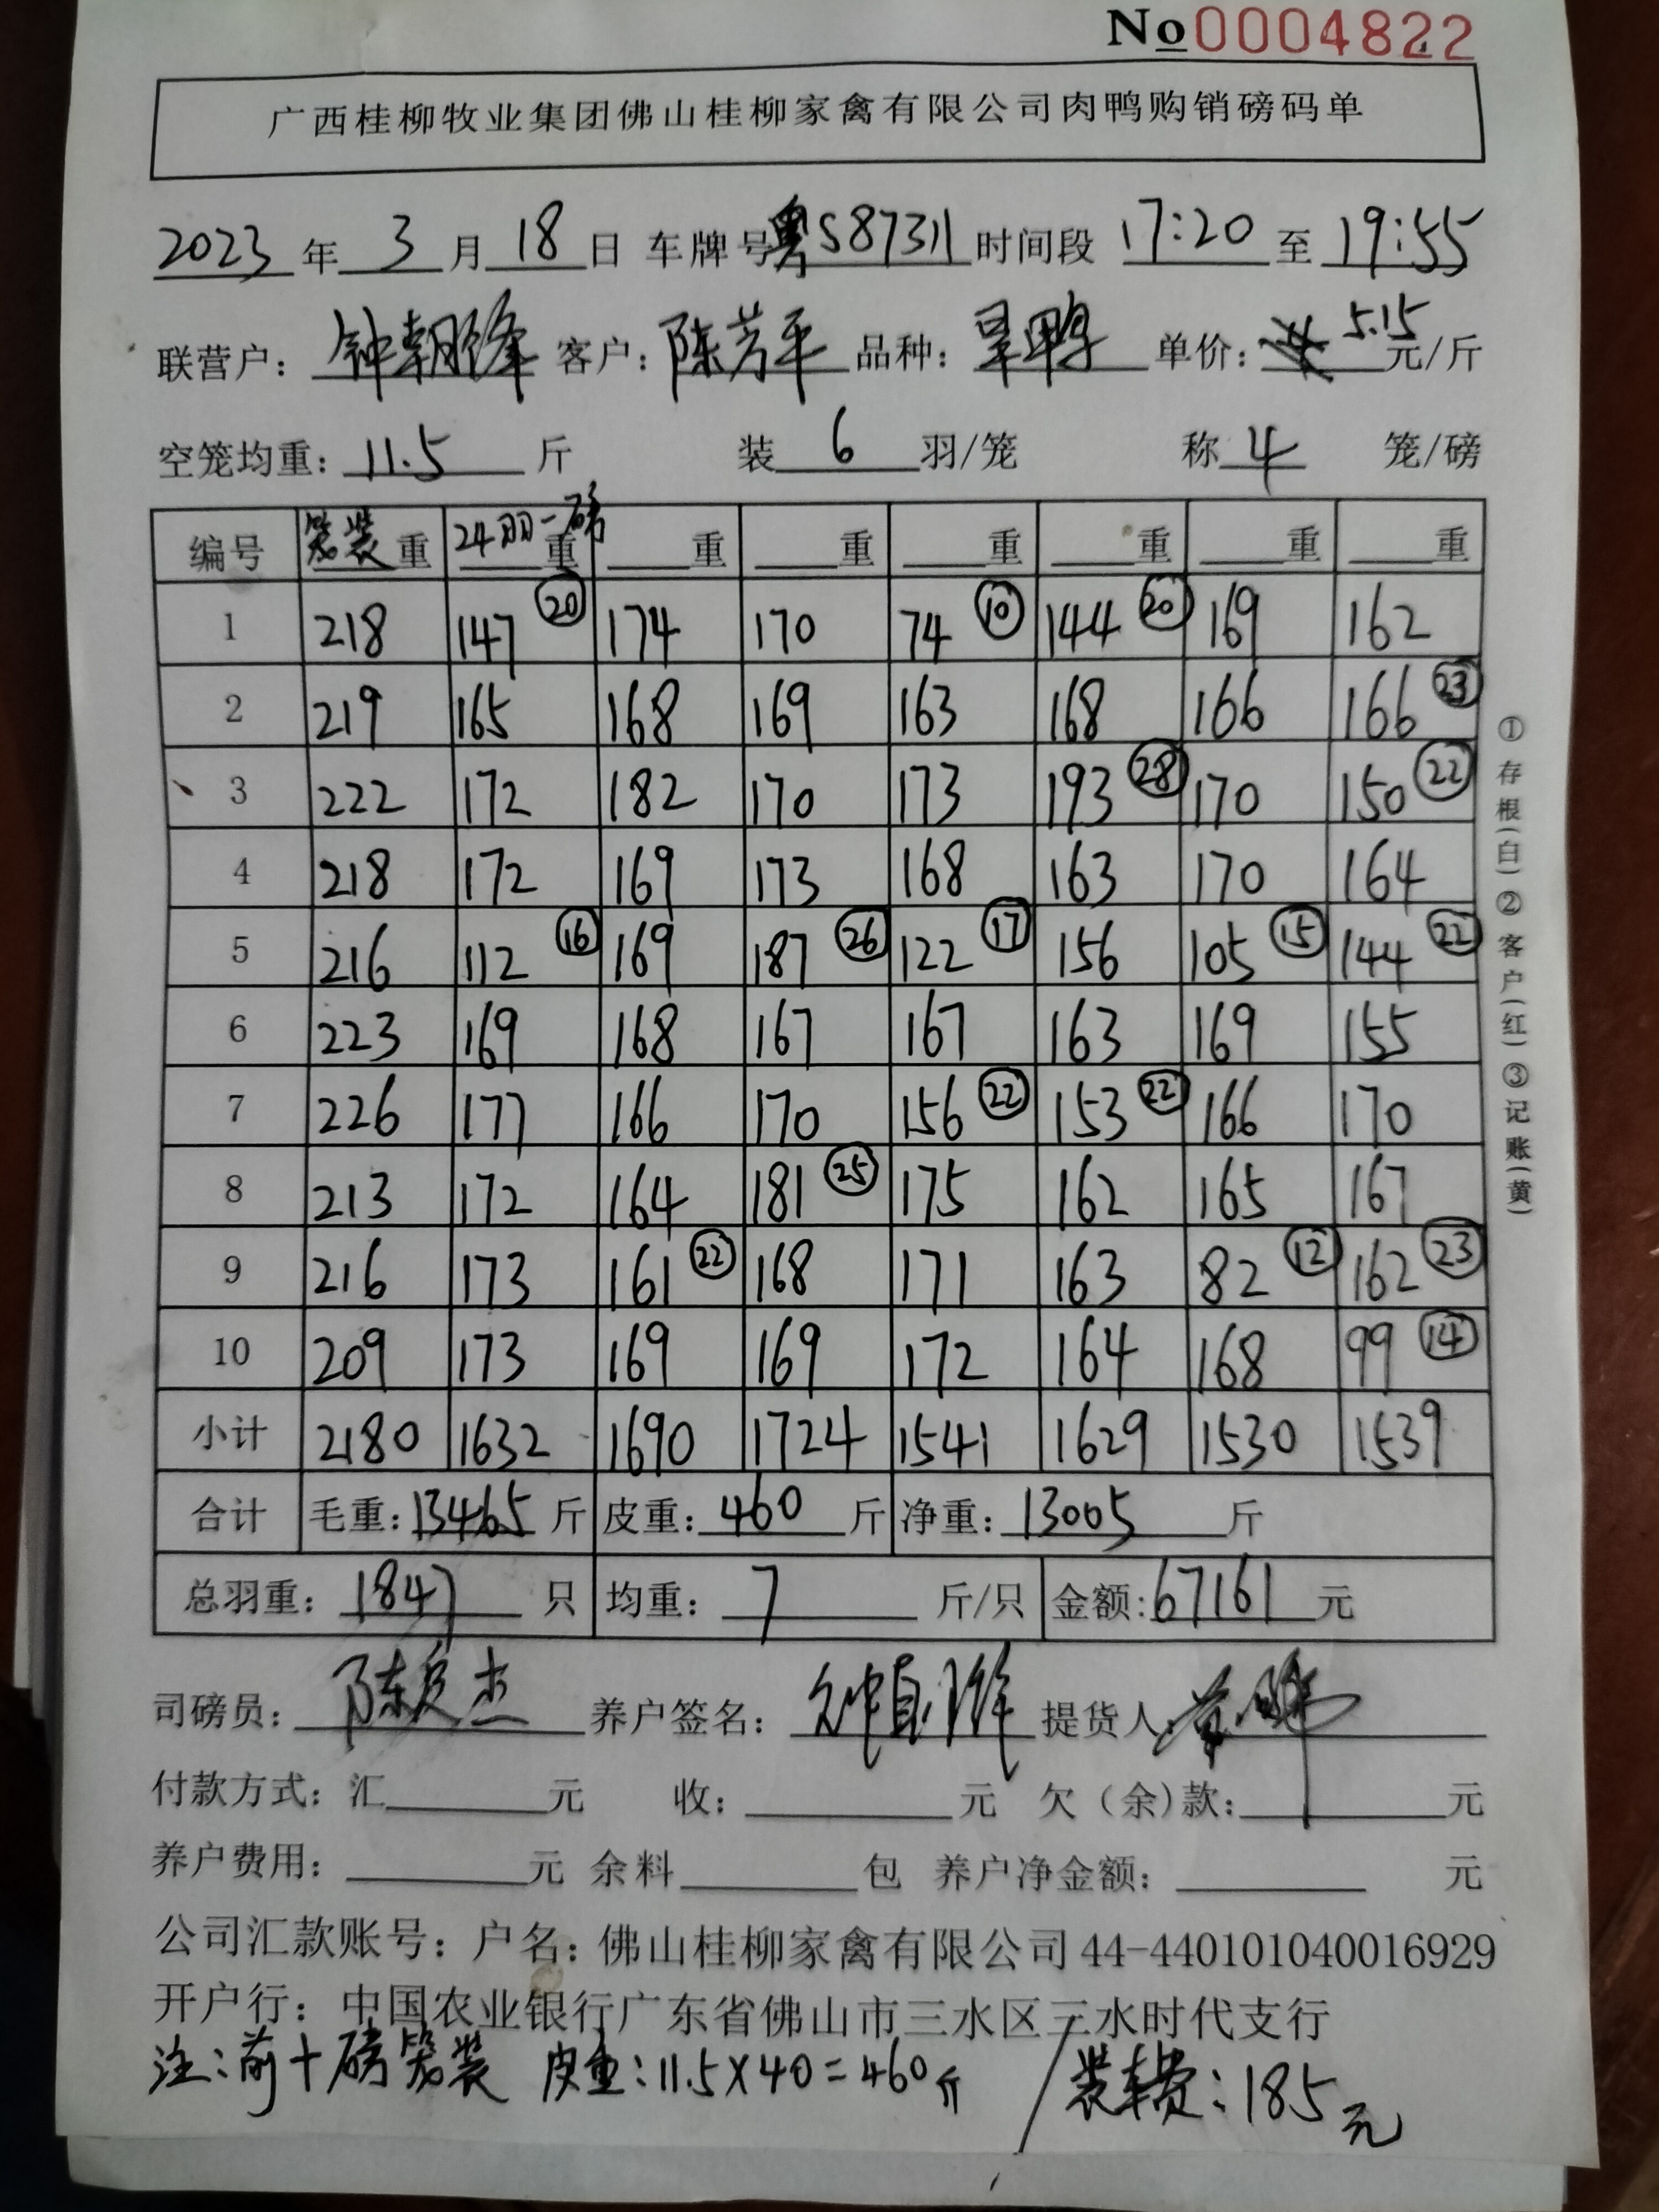 No 0004822
广西桂柳牧业集团佛山桂柳家禽有限公司肉鸭购销磅码单
2023年 3 月 18 日 车牌号粤S87311 时间段 17:20 至 19:55
联营户：钟朝锋 客户：陈芳平 品种：旱鸭 单价：5.15 元/斤
空笼均重：11.5 斤 装 6 羽/笼 称 4 笼/磅
编号 笼装重 24羽一磅重 重 重 重 重 重 重
1 218 147 ⑳ 174 170 74 ⑩ 144 ⑳ 169 162
2 219 165 168 169 163 168 166 166 ㉓
3 222 172 182 170 173 193 ㉘ 170 150 ㉒
4 218 172 169 173 168 163 170 164
5 216 112 ⑯ 169 187 ㉖ 122 ⑰ 156 105 ⑮ 144 ㉒
6 223 169 168 167 167 163 169 155
7 226 177 166 170 156 ㉒ 153 ㉒ 166 170
8 213 172 164 181 ㉕ 175 162 165 167
9 216 173 161 ㉒ 168 171 163 82 ⑫ 162 ㉓
10 209 173 169 169 172 164 168 99 ⑭
小计 2180 1632 1690 1724 1541 1629 1530 1539
合计 毛重：13465 斤 皮重：460 斤 净重：13005 斤
总羽重：1847 只 均重：7 斤/只 金额：67161 元
司磅员：陈 杰 养户签名：钟 锋 提货人：
付款方式：汇 元 收： 元 欠（余）款： 元
养户费用： 元 余料 包 养户净金额： 元
公司汇款账号：户名：佛山桂柳家禽有限公司 44-440101040016929
开户行：中国农业银行广东省佛山市三水区三水时代支行
注：前十磅笼装 皮重：11.5×40=460斤 / 装车费：185元
①存根(白)②客户(红)③记账(黄)